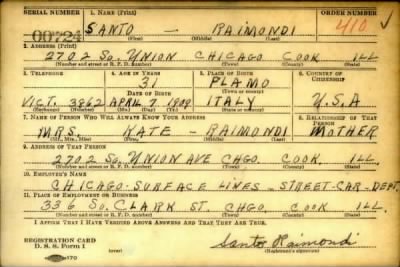 SERIAL NUMBER 1. NAME (Print) ORDER NUMBER
00724 SANTO — RAIMONDI 410
(First) (Middle) (Last)
2. ADDRESS (Print)
2702 So. UNION CHICAGO COOK ILL
(Number and street or R. F. D. number) (Town) (County) (State)
3. TELEPHONE 4. AGE IN YEARS 5. PLACE OF BIRTH 6. COUNTRY OF CITIZENSHIP
31 PLAMO
DATE OF BIRTH (Town or county)
VICT. 3862 APRIL 7 1909 ITALY U.S.A
(Exchange) (Number) (Mo.) (Day) (Yr.) (State or country)
7. NAME OF PERSON WHO WILL ALWAYS KNOW YOUR ADDRESS 8. RELATIONSHIP OF THAT PERSON
MRS. KATE — RAIMONDI MOTHER
(Mr., Mrs., Miss) (First) (Middle) (Last)
9. ADDRESS OF THAT PERSON
2702 So. UNION AVE CHGO. COOK. ILL
(Number and street or R. F. D. number) (Town) (County) (State)
10. EMPLOYER'S NAME
CHICAGO-SURFACE LINES - STREET-CAR-DEPT.
11. PLACE OF EMPLOYMENT OR BUSINESS
336 So. CLARK ST. CHGO. COOK ILL
(Number and street or R. F. D. number) (Town) (County) (State)
I AFFIRM THAT I HAVE VERIFIED ABOVE ANSWERS AND THAT THEY ARE TRUE.
REGISTRATION CARD
D. S. S. Form 1 Santo Raimondi
(Registrant's signature)